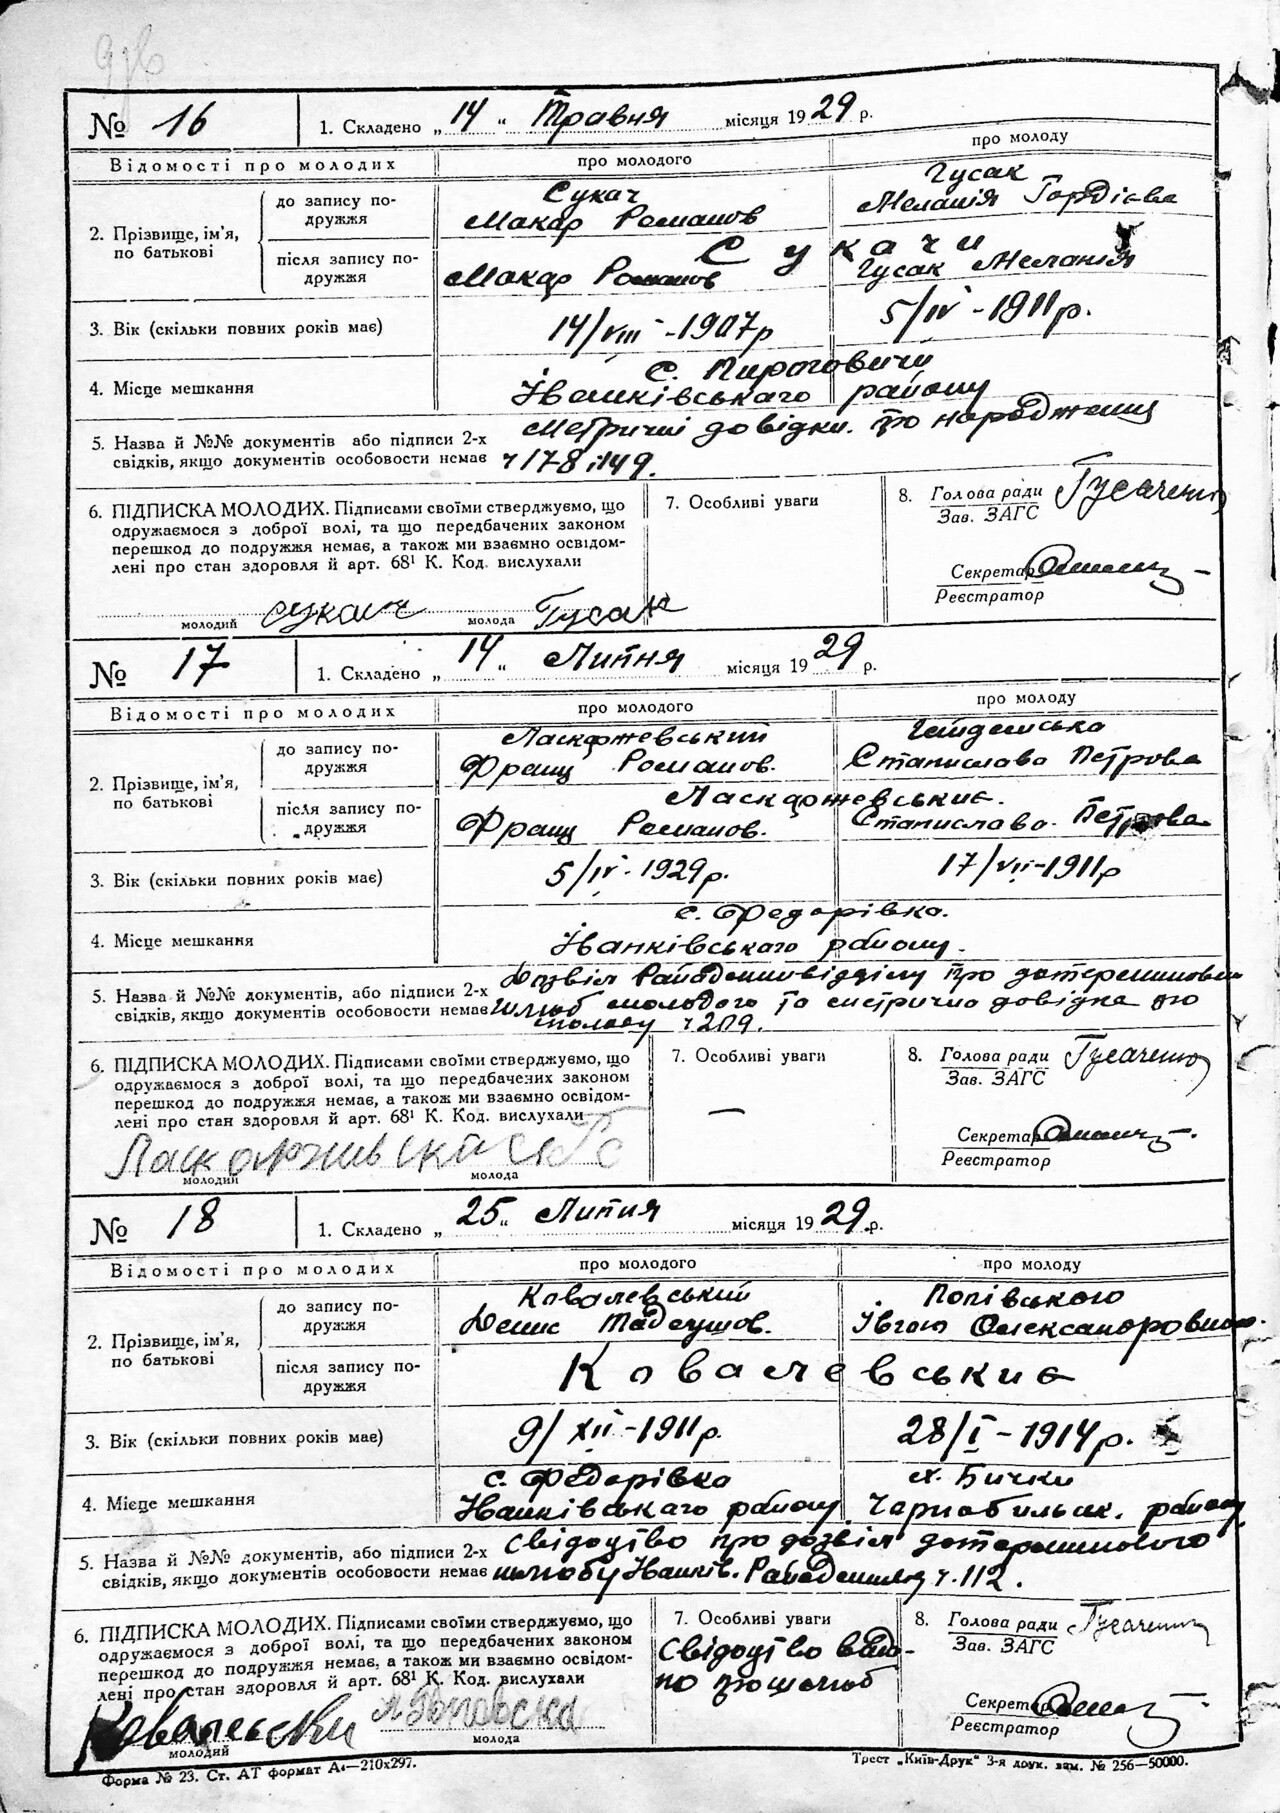 № 16
1. Складено „ 14 “ Травня місяця 1929 р.
Відомості про молодих
про молодого
про молоду
2. Прізвище, ім'я, по батькові
до запису по-
дружжя
Сукач
Макар Романов
Гусак
Меланія Гордієва
Сукачи
після запису по-
дружжя
Макар Романов
Гусак Меланія
3. Вік (скільки повних років має)
14/VIII-1907р
5/IV-1911р.
4. Місце мешкання
с. Пироговичи
Іванківського району
5. Назва й №№ документів або підписи 2-х
свідків, якщо документів особовости немає
Метричні довідки про народження
ч 178 і 149.
6. ПІДПИСКА МОЛОДИХ. Підписами своїми стверджуємо, що
одружаємося з доброї волі, та що передбачених законом
перешкод до подружжя немає, а також ми взаємно освідом-
лені про стан здоровля й арт. 68¹ К. Код. вислухали
сукач
Гусак
молодий
молода
7. Особливі уваги
8. Голова ради
Зав. ЗАГС
Гусаченко
Секретар
Реєстратор
№ 17
1. Складено „ 14 “ Липня місяця 1929 р.
Відомості про молодих
про молодого
про молоду
2. Прізвище, ім'я,
по батькові
до запису по-
дружжя
Ласкаржевський
Франц Романов.
Станислава Петрова
Ласкаржевськие.
після запису по-
дружжя
Франц Романов.
Станислава Петрова
3. Вік (скільки повних років має)
5/IV-1929р.
17/VII-1911р
4. Місце мешкання
с. Федорівка.
Іванківського району.
5. Назва й №№ документів, або підписи 2-х
свідків, якщо документів особовости немає
Дозвіл Райадмінвідділу про дотерминовий
шлюб молодого та метрична довідка
молоду ч 209.
6. ПІДПИСКА МОЛОДИХ. Підписами своїми стверджуємо, що
одружаємося з доброї волі, та що передбачених законом
перешкод до подружжя немає, а також ми взаємно освідом-
лені про стан здоровля й арт. 68¹ К. Код. вислухали
молодий
молода
7. Особливі уваги
—
8. Голова ради
Зав. ЗАГС
Гусаченко
Секретар
Реєстратор
№ 18
1. Складено „ 25 “ Липня місяця 1929 р.
Відомості про молодих
про молодого
про молоду
2. Прізвище, ім'я,
по батькові
до запису по-
дружжя
Ковалевський
Денис Тадеушов.
після запису по-
дружжя
Ковалевськие
3. Вік (скільки повних років має)
9/XII-1911р.
28/I-1914р.
4. Місце мешкання
с. Федорівка
Іванківського району
х. Бички
Чорнобильск. району
5. Назва й №№ документів, або підписи 2-х
свідків, якщо документів особовости немає
Свідоцтво про дозвіл дотерминового
шлюбу Іванків. ч. 112.
6. ПІДПИСКА МОЛОДИХ. Підписами своїми стверджуємо, що
одружаємося з доброї волі, та що передбачених законом
перешкод до подружжя немає, а також ми взаємно освідом-
лені про стан здоровля й арт. 68¹ К. Код. вислухали
молодий
молода
7. Особливі уваги
Свідоцтво видано
про шлюб
8. Голова ради
Зав. ЗАГС
Гусаченко
Секретар
Реєстратор
Форма № 23. Ст. АТ формат А₄—210х297.
Трест „Київ-Друк“ 3-я друк. зам. № 256—50000.